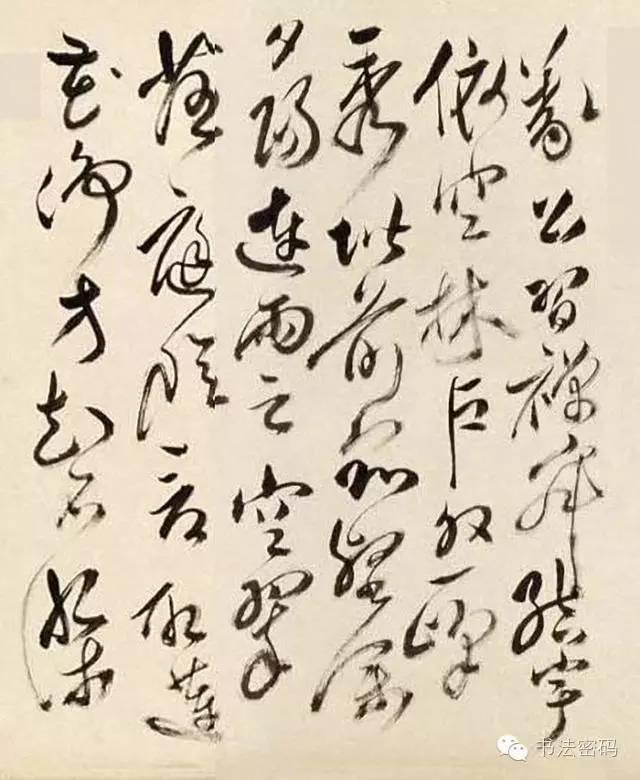 義公習禪寂結宇
依空林戶外一峰
秀階前衆壑深
夕陽連雨足空翠
落庭陰看取蓮
花淨方知不染
书法密码